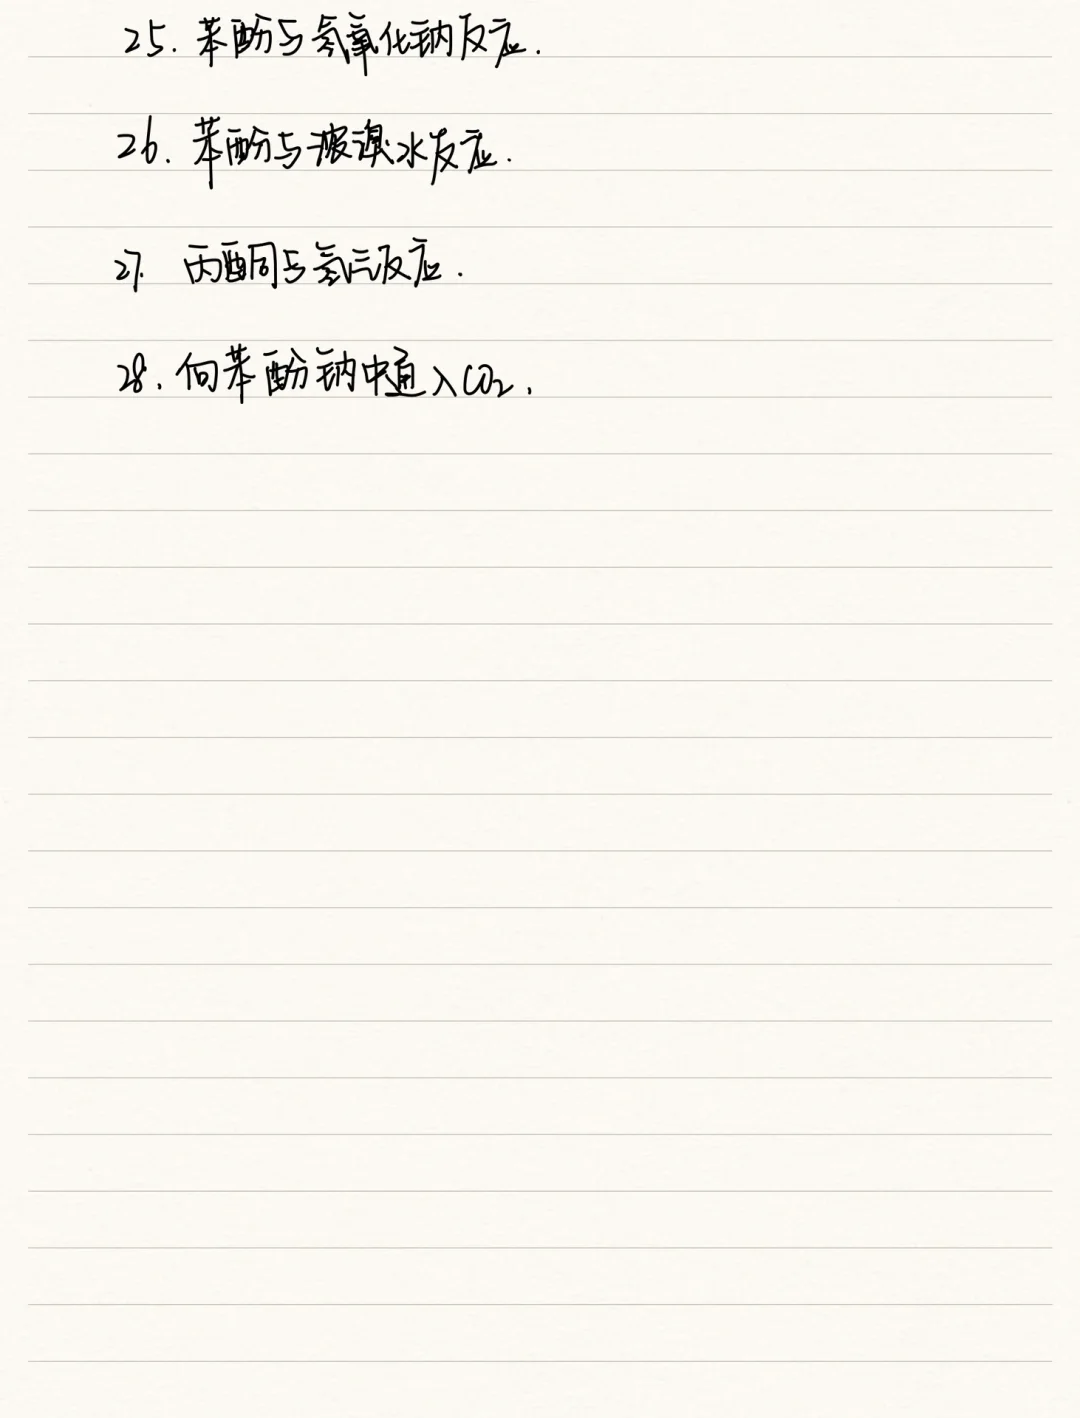 25. 苯酚与氢氧化钠反应.
26. 苯酚与浓溴水反应.
27. 丙酮与氢气反应.
28. 向苯酚钠中通入CO2.